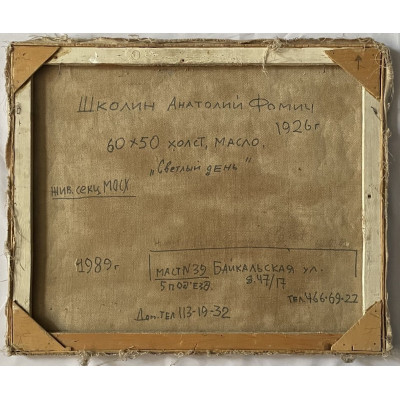 Школин Анатолий Фомич
1926г
60х50 холст, масло,
„Светлый день"
жив. секц МОСХ
1989г
маст N39 Байкальская ул.
5 под'езд. д.47/17
тел 466-69-22
Дом. тел 113-19-32